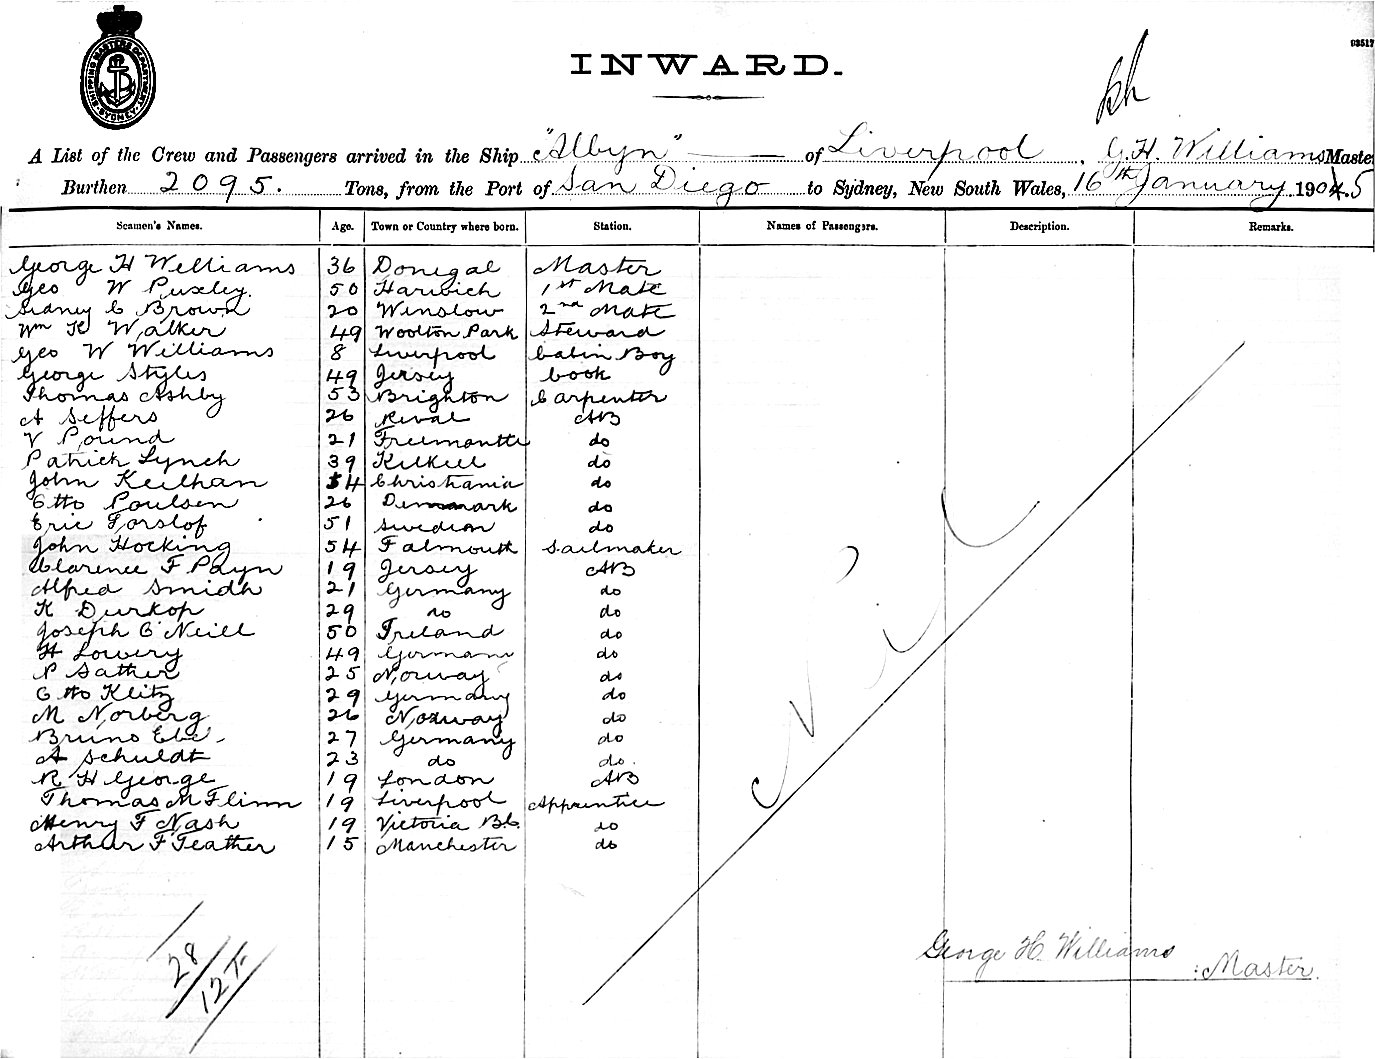 SHIPPING MASTERS DEPARTMENT SYDNEY
03517
INWARD.
A List of the Crew and Passengers arrived in the Ship "Albyn" of Liverpool, G. H. Williams Master
Burthen 2095. Tons, from the Port of San Diego to Sydney, New South Wales, 16th January 1905
Seamen's Names. Age. Town or Country where born. Station. Names of Passengers. Description. Remarks.
George H Williams 36 Donegal Master
Geo W Puxley. 50 Harwich 1st Mate
Sidney C Brown 20 Winslow 2nd Mate
Wm H Walker 49 Woolton Park Steward
Geo W Williams 8 Liverpool Cabin Boy
George Styles 49 Jersey Cook
Thomas Ashby 53 Brighton Carpenter
A Seffers 26 Reval AB
V Pound 21 Freemantle do
Patrick Lynch 39 Kilkeel do
John Keilhan 54 Christiania do
Otto Poulsen 26 Denmark do
Eric Forslof 51 Sweden do
John Hocking 54 Falmouth Sailmaker
Clarence F Payn 19 Jersey AB
Alfred Smidh 21 Germany do
K Durkop 29 do do
Joseph O'Neill 50 Ireland do
H Lowery 49 Germany do
P Sather 25 Norway do
Otto Klitz 29 Germany do
M Norberg 26 Norway do
Bruno Ebe 27 Germany do
A Schuldt 23 do do.
R H George 19 London AB
Thomas M Flinn 19 Liverpool Apprentice
Henry F Nash 19 Victoria B.C. do
Arthur F Feather 15 Manchester do
Nil
George H. Williams
Master.
28
12